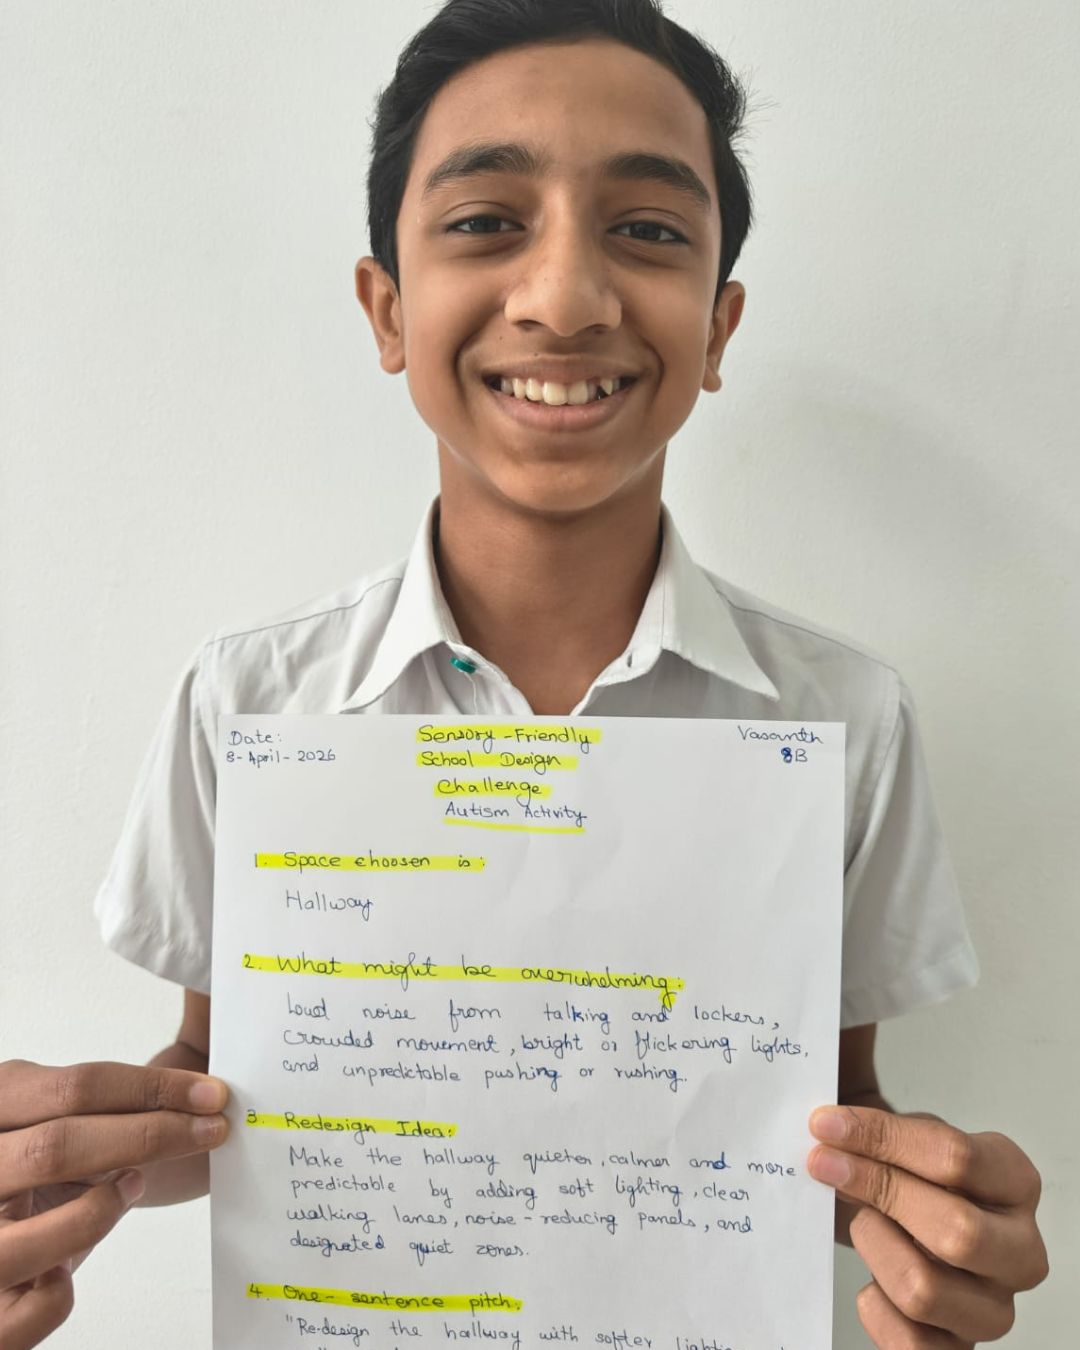 Date:
8-April-2026
Sensory-Friendly
School Design
Challenge
Autism Activity
Vasanth
8B
1. Space choosen is:
Hallway
2. What might be overwhelming:
Loud noise from talking and lockers,
Crowded movement, bright or flickering lights,
and unpredictable pushing or rushing.
3. Redesign Idea:
Make the hallway quieter, calmer and more
predictable by adding soft lighting, clear
walking lanes, noise-reducing panels, and
designated quiet zones.
4. One-sentence pitch:
"Re-design the hallway with softer